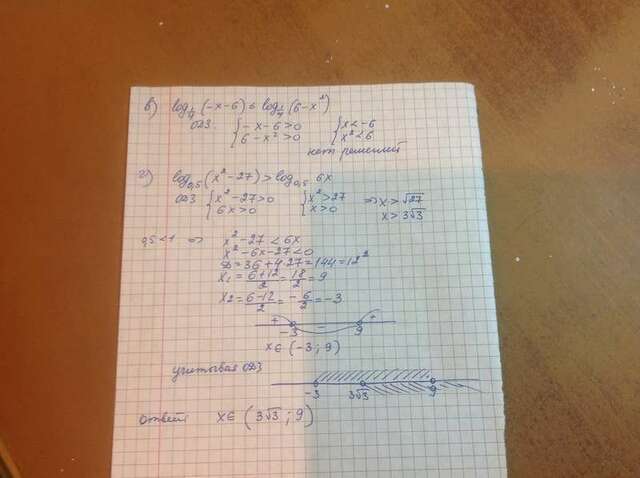 в) log₁/₇(-x-6) ≤ log₁/₇(6-x²)
ОДЗ. { -x-6>0 { x<-6
{ 6-x²>0 { x²<6
нет решений
г) log₀,₅(x²-27) > log₀,₅ 6x
ОДЗ { x²-27>0 { x²>27 => x>√27
{ 6x>0 { x>0 x>3√3
0,5<1 => x²-27<6x
x²-6x-27<0
D=36+4·27=144=12²
x₁=(6+12)/2=18/2=9
x₂=(6-12)/2=-6/2=-3
+ - +
-3 9
x∈(-3;9)
учитывая ОДЗ
-3 3√3 9
Ответ x∈(3√3;9)